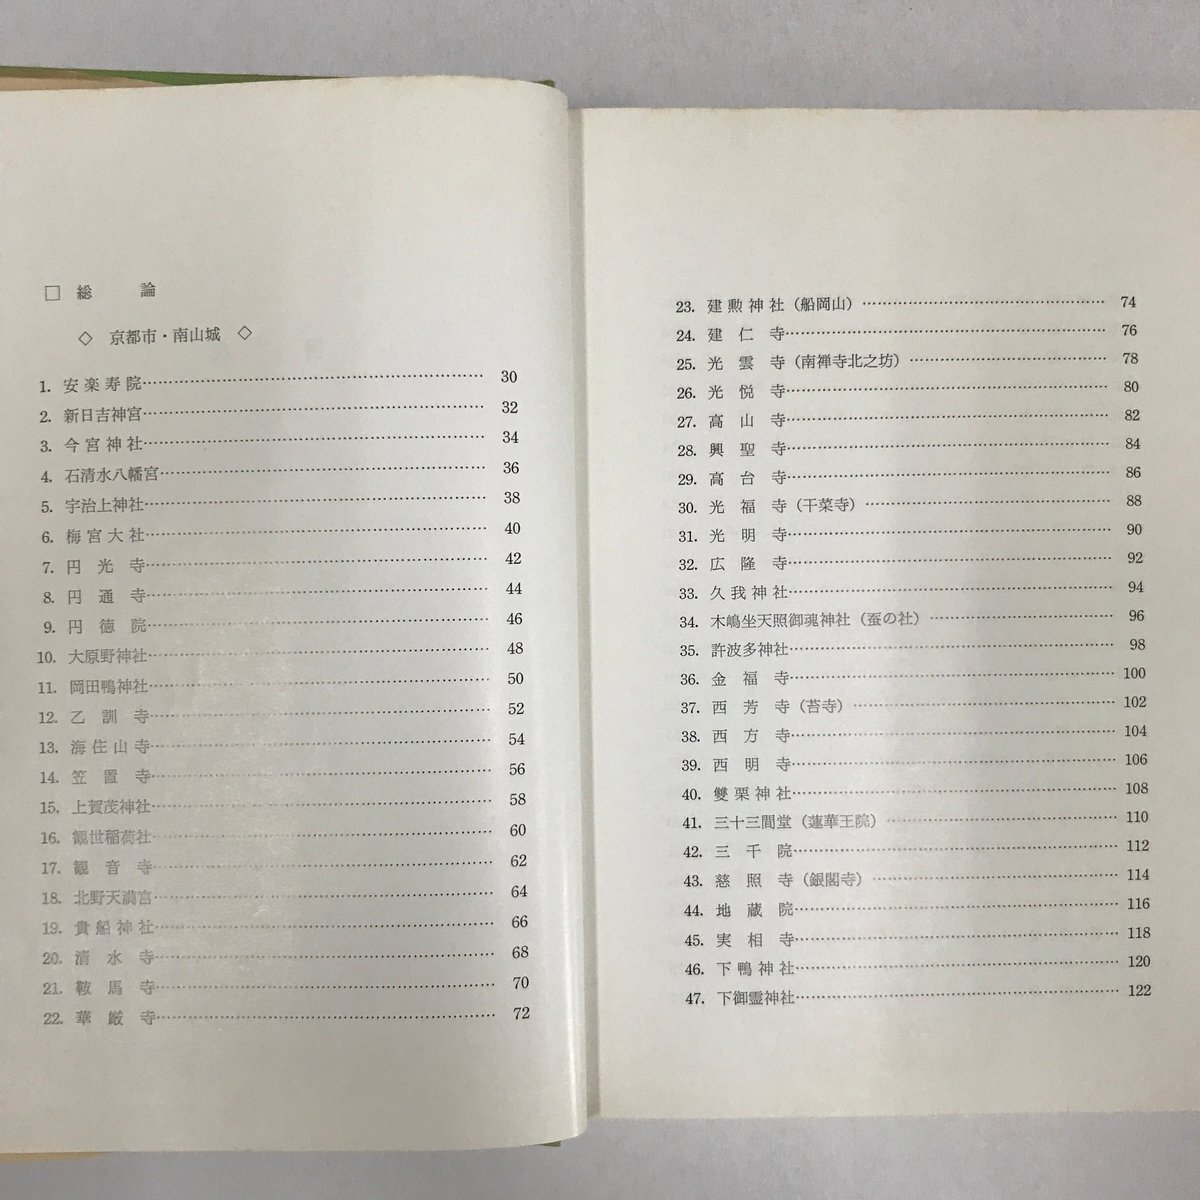 □ 総 論
◇ 京都市・南山城 ◇
1. 安楽寿院……30
2. 新日吉神宮……32
3. 今宮神社……34
4. 石清水八幡宮……36
5. 宇治上神社……38
6. 梅宮大社……40
7. 円光寺……42
8. 円通寺……44
9. 円徳院……46
10. 大原野神社……48
11. 岡田鴨神社……50
12. 乙訓寺……52
13. 海住山寺……54
14. 笠置寺……56
15. 上賀茂神社……58
16. 観世稲荷社……60
17. 観音寺……62
18. 北野天満宮……64
19. 貴船神社……66
20. 清水寺……68
21. 鞍馬寺……70
22. 華厳寺……72
23. 建勲神社（船岡山）……74
24. 建仁寺……76
25. 光雲寺（南禅寺北之坊）……78
26. 光悦寺……80
27. 高山寺……82
28. 興聖寺……84
29. 高台寺……86
30. 光福寺（干菜寺）……88
31. 光明寺……90
32. 広隆寺……92
33. 久我神社……94
34. 木嶋坐天照御魂神社（蚕の社）……96
35. 許波多神社……98
36. 金福寺……100
37. 西芳寺（苔寺）……102
38. 西方寺……104
39. 西明寺……106
40. 雙栗神社……108
41. 三十三間堂（蓮華王院）……110
42. 三千院……112
43. 慈照寺（銀閣寺）……114
44. 地蔵院……116
45. 実相寺……118
46. 下鴨神社……120
47. 下御霊神社……122